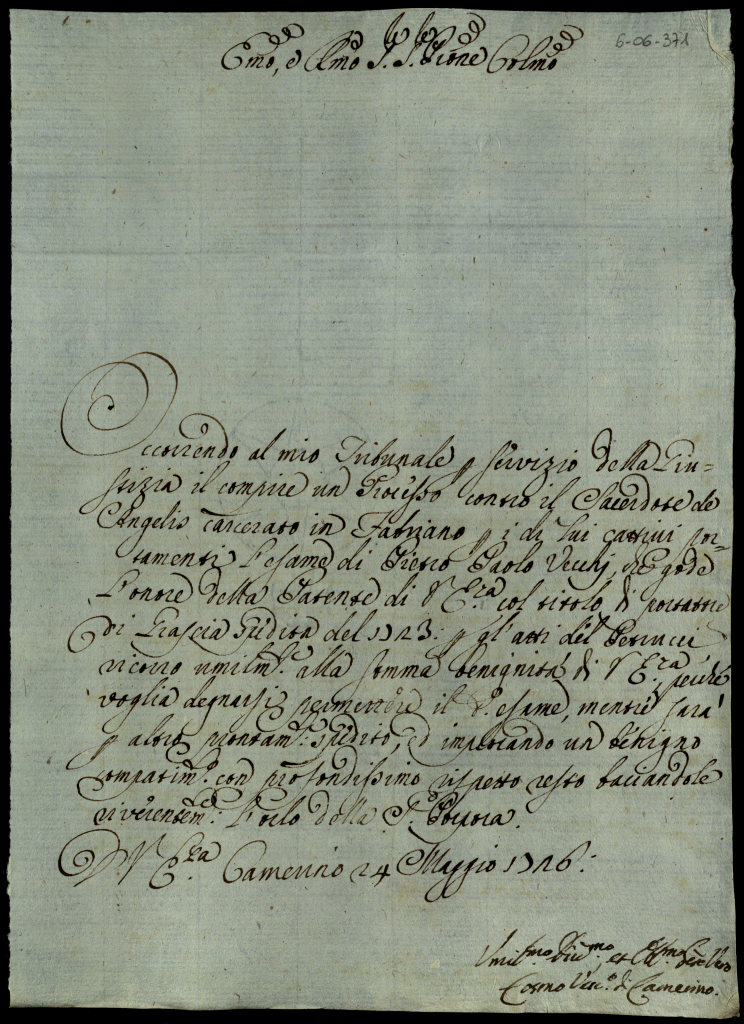 6-06-371
Emo, e Rmo S. S. Prone Colmo
Occorrendo al mio Tribunale p servizio della Giu=
stizia il compire un Processo contro il Sacerdote de
Angelis carcerato in Fabriano p i di lui cattivi por=
tamenti l'esame di Pietro Paolo Vecchj, che gode
l'onore della Patente di V. E.ra col titolo di
di Grascia spedita del 1723: p gl'atti del Petrucci
ricorro umilm.e alla somma benignità di V. E.ra, perchè
voglia degnarsi permettere il d.o esame, mentre sarà
p altro prontam.e spedito, ed implorando un benigno
compatim.o con profondissimo rispetto resto baciandole
riverentem.e l'orlo della S. Porpora.
D V. E.ra Camerino 24 Maggio 1726:
Umil.mo Div.mo, et Obl.mo Ser. Vero
Cosmo Vesc.o di Camerino.